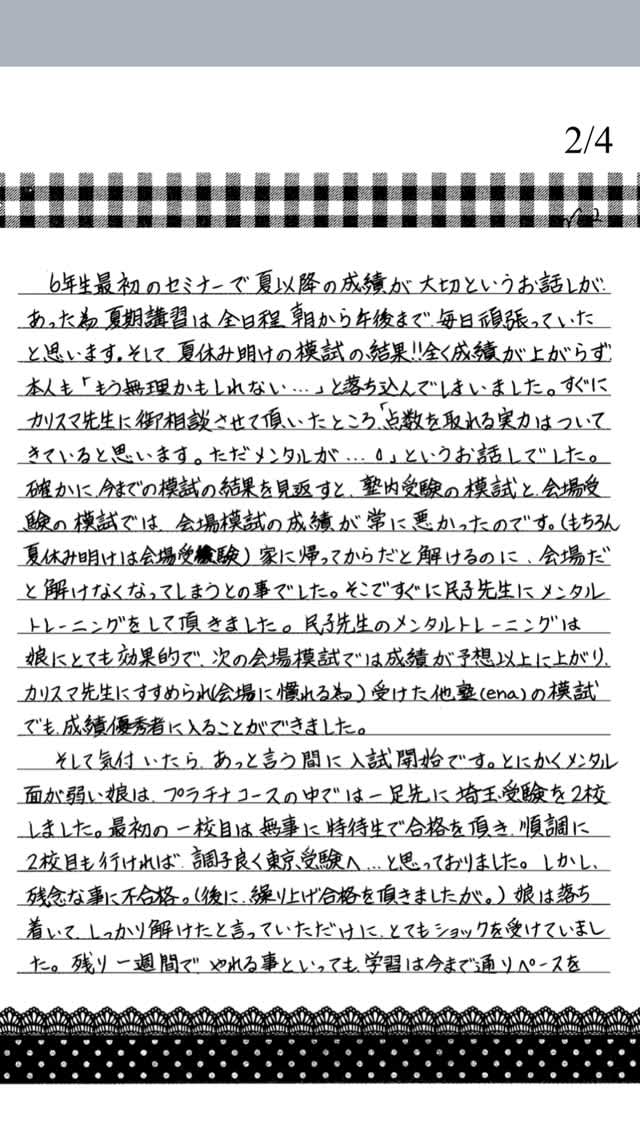 2/4
6年生最初のセミナーで夏以降の成績が大切というお話しが
あった為夏期講習は全日程朝から午後まで毎日頑張っていた
と思います。そして夏休み明けの模試の結果!!全く成績が上がらず
本人も「もう無理かもしれない…」と落ち込んでしまいました。すぐに
カリスマ先生に御相談させて頂いたところ「点数を取れる実力はついて
きていると思います。ただメンタルが…。」というお話しでした。
確かに、今までの模試の結果を見返すと、塾内受験の模試と、会場受
験の模試では、会場模試の成績が常に悪かったのです。(もちろん
夏休み明けは会場受験)家に帰ってからだと解けるのに、会場だ
と解けなくなってしまうとの事でした。そこですぐに民子先生にメンタル
トレーニングをして頂きました。民子先生のメンタルトレーニングは
娘にとても効果的で、次の会場模試では成績が予想以上に上がり、
カリスマ先生にすすめられ(会場に慣れる為)受けた他塾(ena)の模試
でも、成績優秀者に入ることができました。
そして気付いたら、あっと言う間に入試開始です。とにかくメンタル
面が弱い娘は、プラチナコースの中では一足先に埼玉受験を2校
しました。最初の一校目は無事に特待生で合格を頂き、順調に
2校目も行ければ、調子良く東京受験へ…と思っておりました。しかし、
残念な事に不合格。(後に、繰り上げ合格を頂きましたが。)娘は落ち
着いて、しっかり解けたと言っていただけに、とてもショックを受けていまし
た。残り一週間で、やれる事といっても、学習は今まで通りペースを